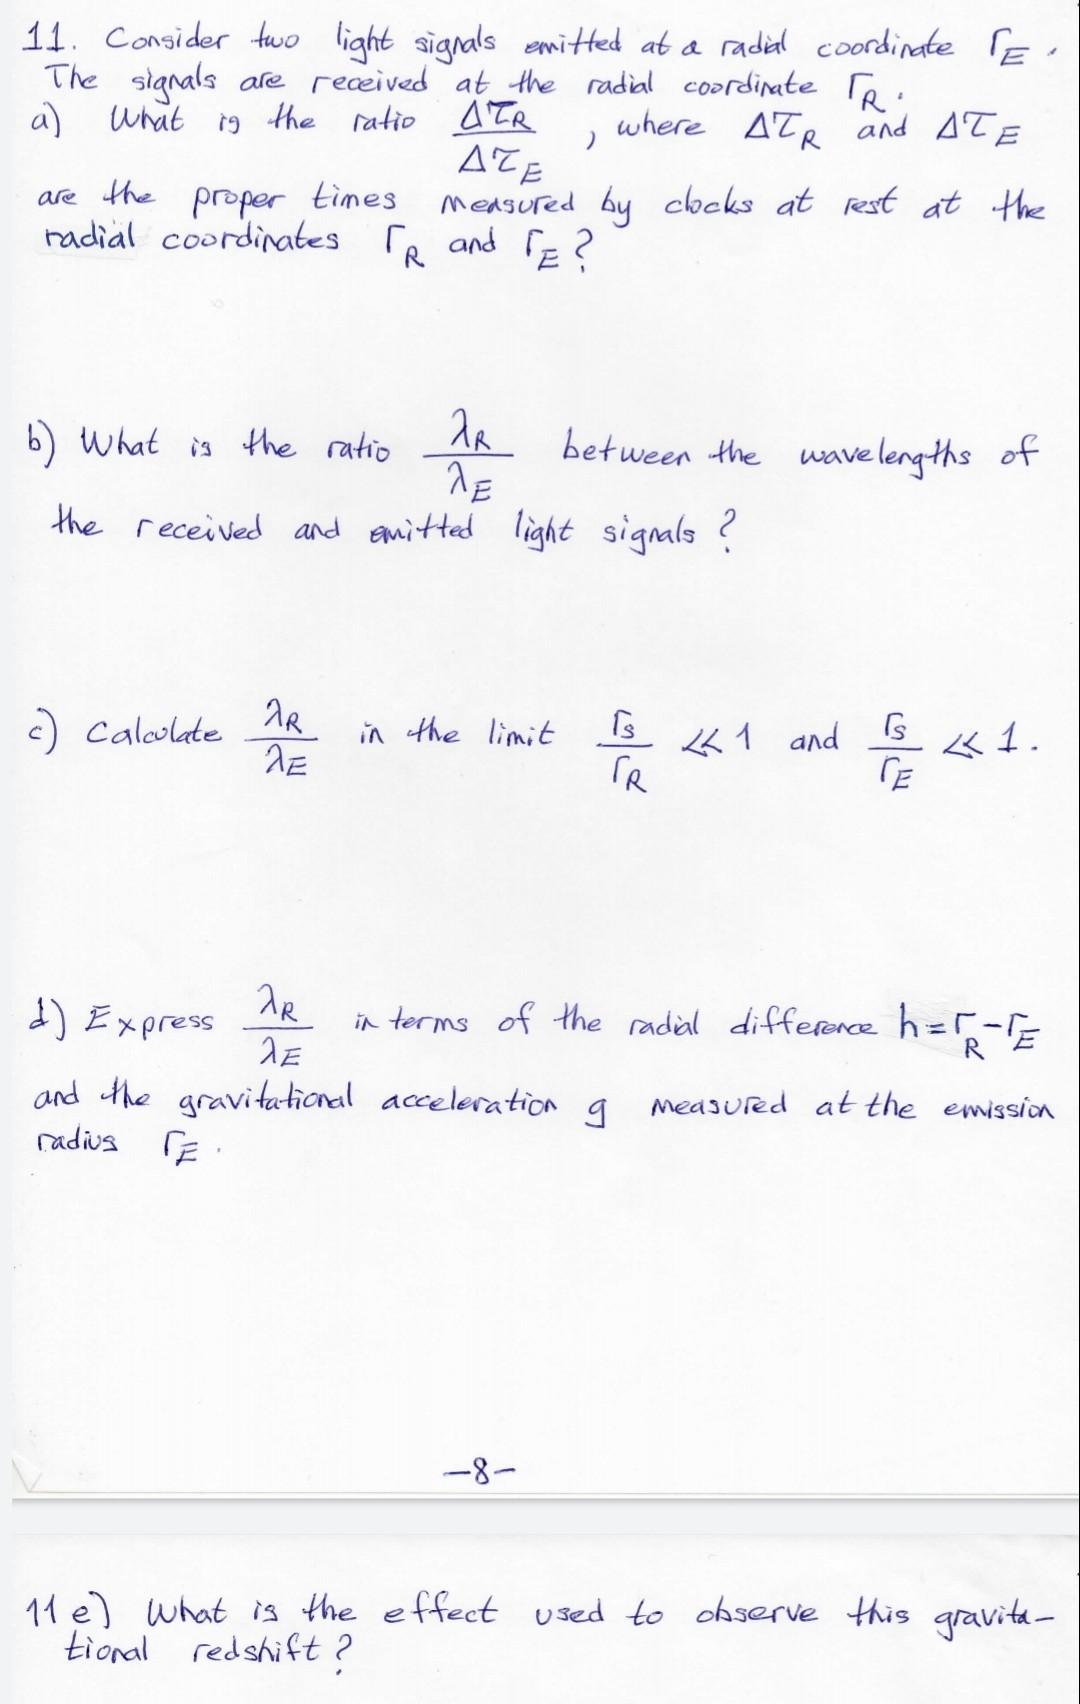 11. Consider two light signals emitted at a radial coordinate r_E.
The signals are received at the radial coordinate r_R.
a) What is the ratio Δτ_R/Δτ_E, where Δτ_R and Δτ_E
are the proper times measured by clocks at rest at the
radial coordinates r_R and r_E?
b) What is the ratio λ_R/λ_E between the wavelengths of
the received and emitted light signals?
c) Calculate λ_R/λ_E in the limit r_s/r_R ≪ 1 and r_s/r_E ≪ 1.
d) Express λ_R/λ_E in terms of the radial difference h=r_R-r_E
and the gravitational acceleration g measured at the emission
radius r_E.
-8-
11 e) What is the effect used to observe this gravita-
tional redshift?